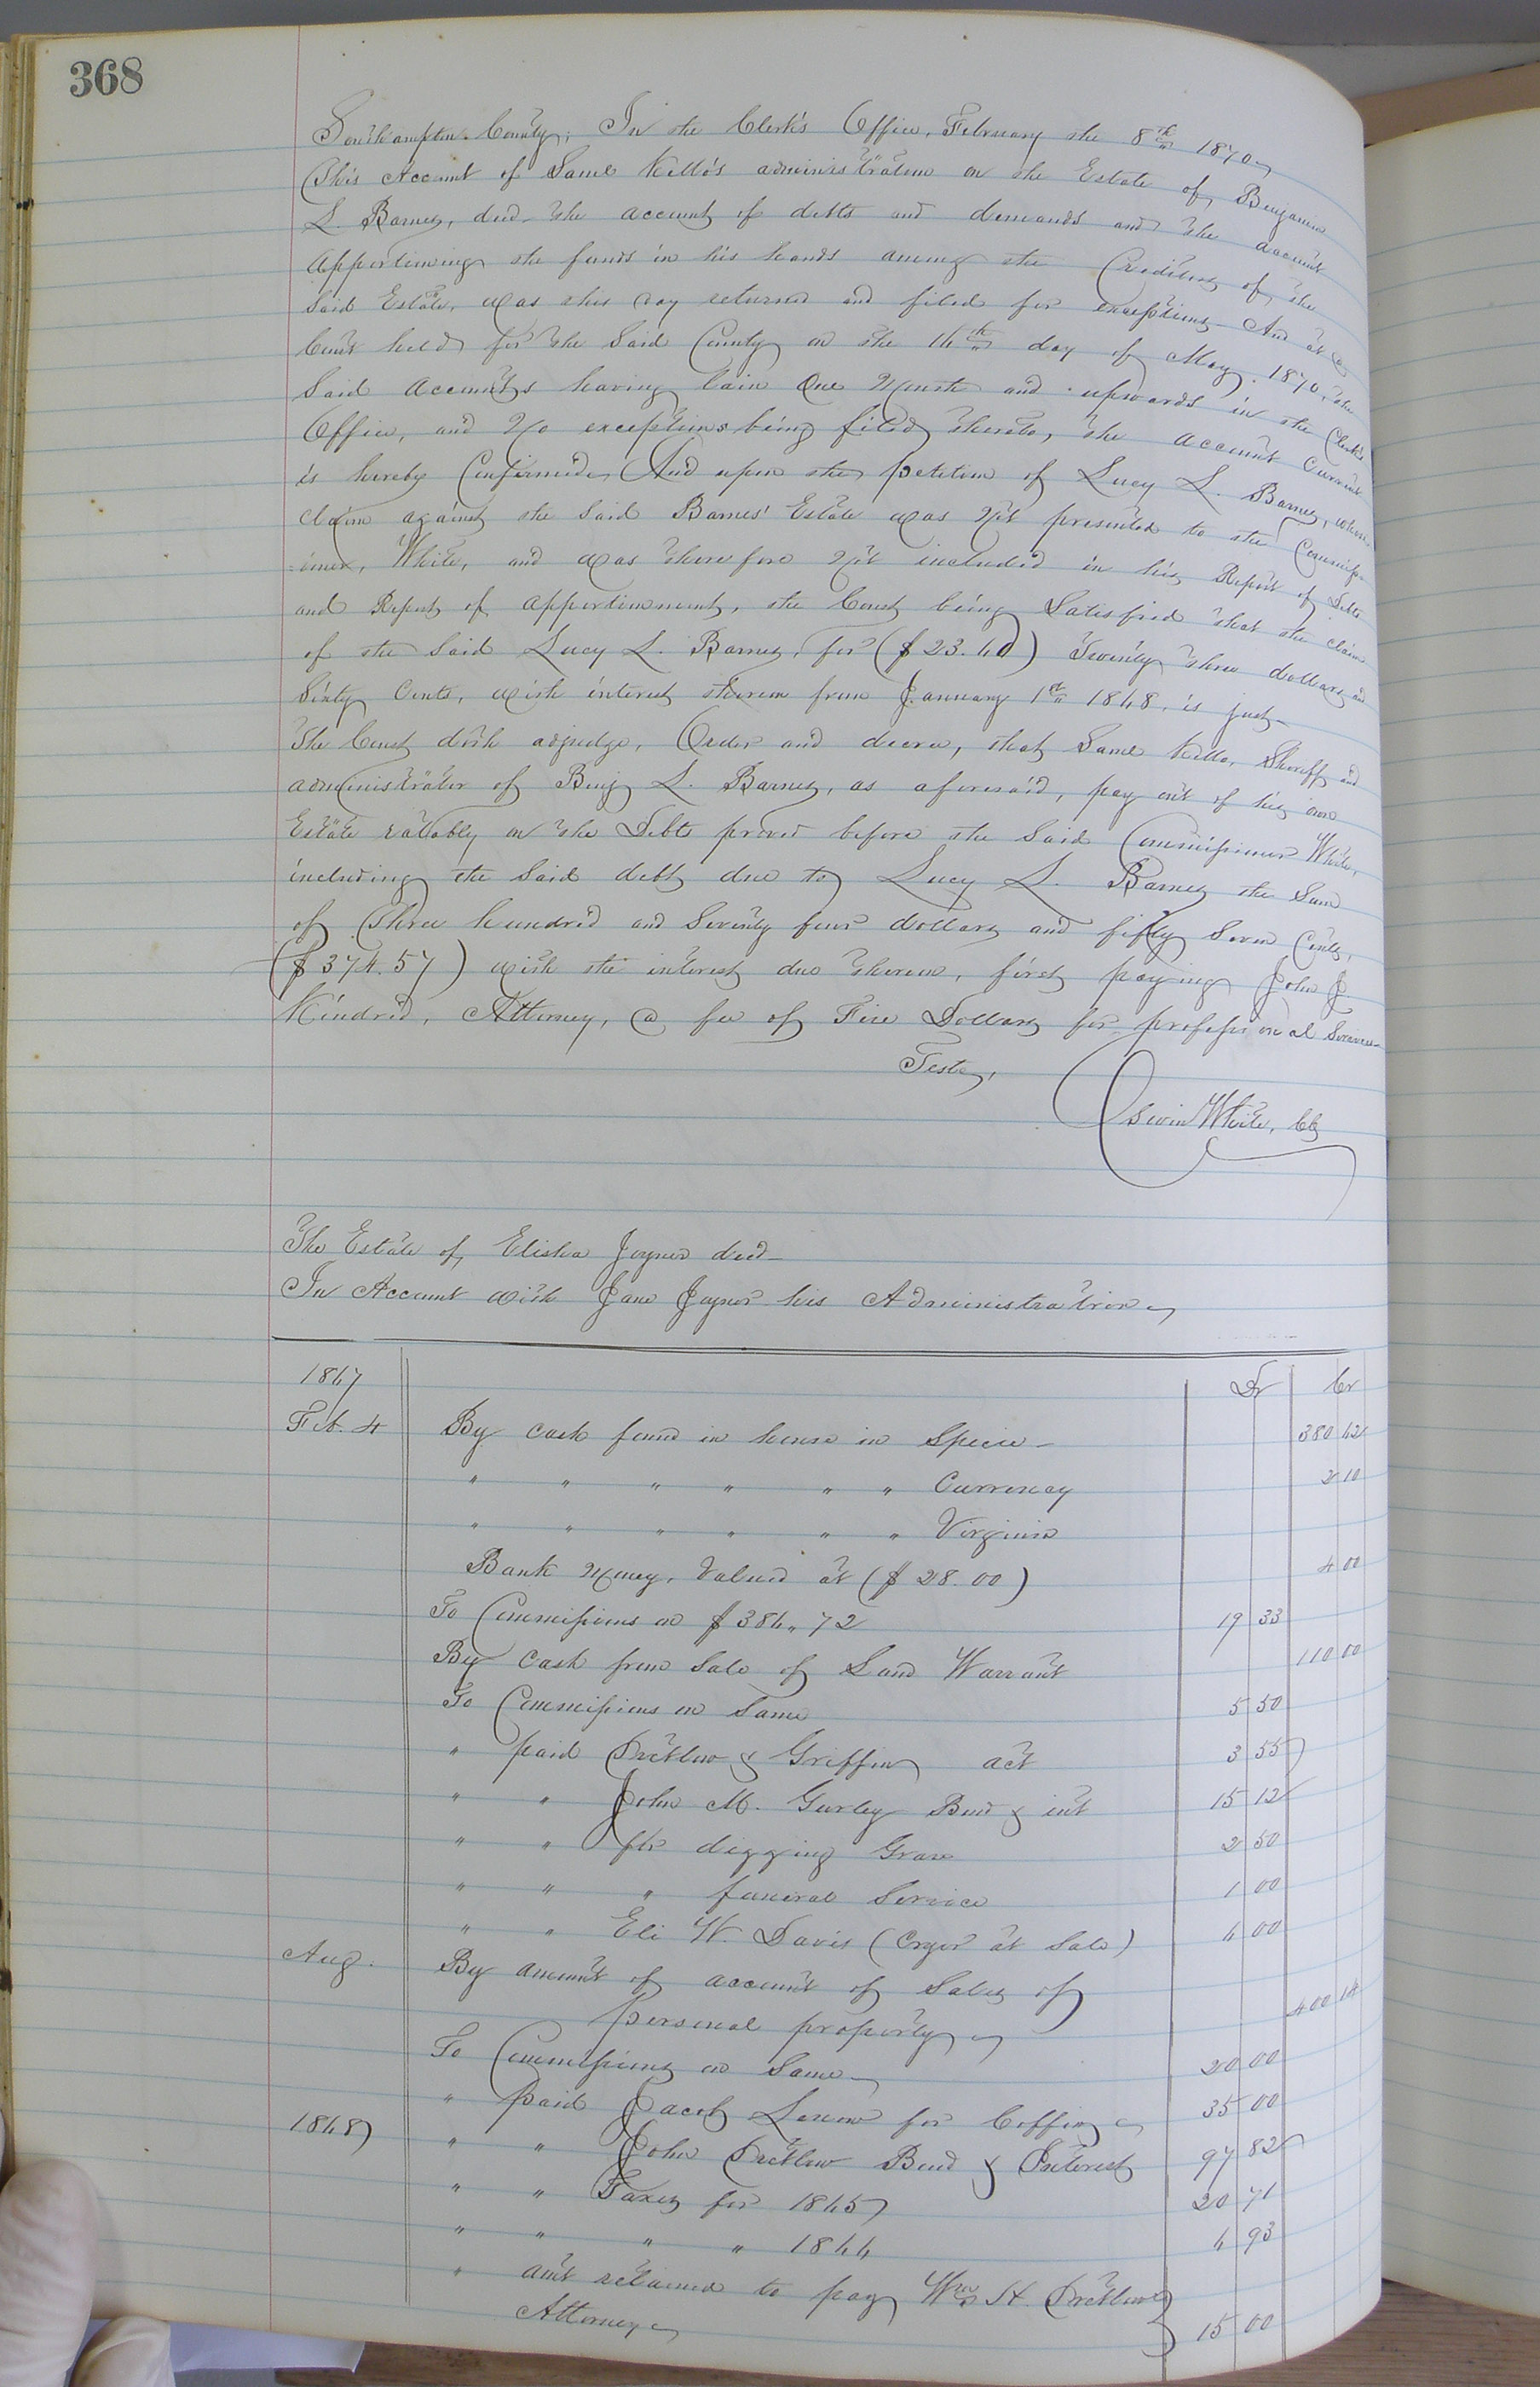 368
Southampton County; In the Clerk's Office, February the 8th 1870
This Account of Saml Kello's administration on the Estate of Benjamin
L. Barnes, decd the account of debts and demands and the account
Apportioning the funds in his hands among the Creditors of the
Said Estate, was this day returned and filed for exceptions And at a
Court held for the Said County on the 16th day of May. 1870, the
Said Accounts having lain One Month and upwards in the Clerk's
Office, and No exceptions being filed thereto, the account Current
is hereby Confirmed, And upon the petition of Lucy L. Barnes, whose
claim against the Said Barnes' Estate was Not presented to the Commiss
=ioner, White, and was therefore Not included in his Report of Debts
and Report of Apportionment, the Court being Satisfied that the claim
of the Said Lucy L. Barnes, for ($23.60) Twenty three dollars and
Sixty Cents, with interest thereon from January 1st 1868, is just
The Court doth adjudge, Order and decree, that Saml Kello, Sheriff and
administrator of Benj L. Barnes, as aforesaid, pay out of his own
Estate ratably on the Debts proved before the Said Commissioner White,
including the Said debt due to Lucy L. Barnes the Sum
of Three hundred and Seventy four dollars and fifty Seven Cents,
($374.57) with the interest due thereon, first paying John J.
Kindred, Attorney, a fee of Five Dollars for professional Services
Teste,
Oswin White, Clk
The Estate of Elisha Joyner decd
In Account with Jane Joyner his Administratrix
1867 Dr Cr
Feb. 4 By Cash found in house in Specie 380 62
" " " " " " Currency 2 10
" " " " " " Virginia
Bank Money, Valued at ($28.00) 4 00
To Commissions on $386.72 19 33
By Cash from Sale of Land Warrant 110 00
To Commissions on Same 5 50
" paid Pretlow & Griffin act 3 55
" " John M. Gurley Bond & int 15 12
" " for digging Grave 2 50
" " " funeral Service 1 00
" " Eli W. Davis (Cryer at Sale) 6 00
Aug. By amount of account of Sales of
personal property 400 14
To Commissions on Same 20 00
" Paid Jacob for Coffin 35 00
1868 " " John Pretlow Bond & Interest 97 82
" " Taxes for 1865 20 71
" " " " 1866 6 93
" amt retained to pay Wm H. Pretlow
Attorney 15 00